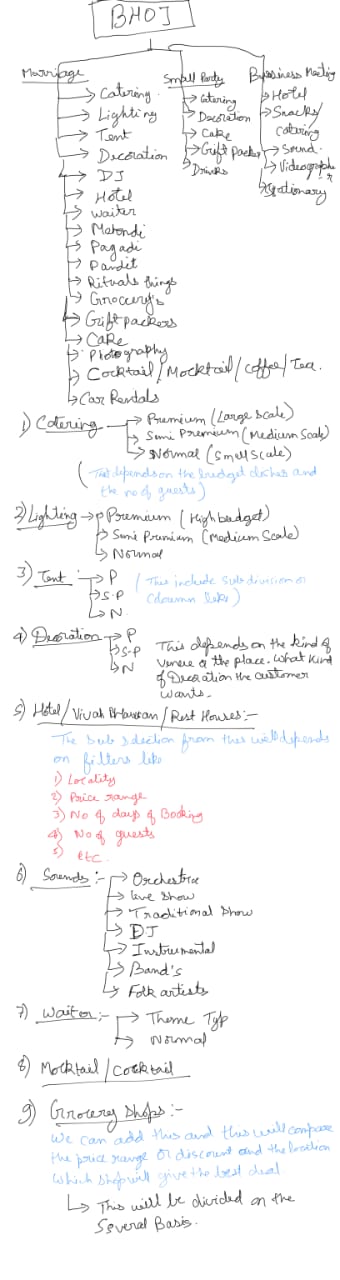 BHOJ
Marriage
Catering
Lighting
Tent
Decoration
DJ
Hotel
Waiter
Mehendi
Pagadi
Pandit
Rituals things
Groccery's
Grift packers
Cake
Photography
Cocktail / Mocktail / Coffee / Tea.
Car Rentals
Small Party
Catering
Decoration
Cake
Grift Packer
Drinks
Bussiness Meeting
Hotel
Snacks/
catering
Sound
Videography
Stationary
1) Catering → Premium (Large scale)
Simi Premium (Medium Scale)
Normal (Small Scale)
(This depends on the budget dishes and
the no of guests)
2) Lighting → Premium (High budget)
Simi Premium (Medium Scale)
Normal
3) Tent → P
S.P
N
(This include sub division or
column like)
4) Decoration → P
S.P
N
This depends on the kind of
venue or the place. What kind
of Decoration the customer
wants.
5) Hotel / Vivah Bhawan / Rest Houses :-
The sub selection from this will depends
on filters like
1) Locality
2) Price range
3) No of days of Booking
4) No of guests
5) etc.
6) Sounds :- → Orchestra
live show
Traditional Show
DJ
Instrumental
Band's
Folk artists
7) Waiter :- → Theme Typ
Normal
8) Mocktail / Cocktail
9) Grocery Shops :-
We can add this and this will compare
the price range or discount and the location
which shop will give the best deal.
↳ This will be divided on the
Several Basis.